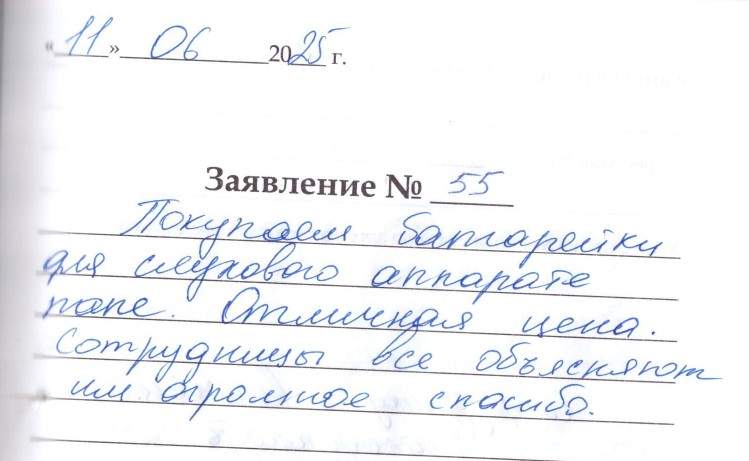 «11» 06 2025 г.
Заявление № 55
Покупаем батарейки
для слухового аппарате
папе. Отличная цена.
Сотрудницы все объясняют
им огромное спасибо.